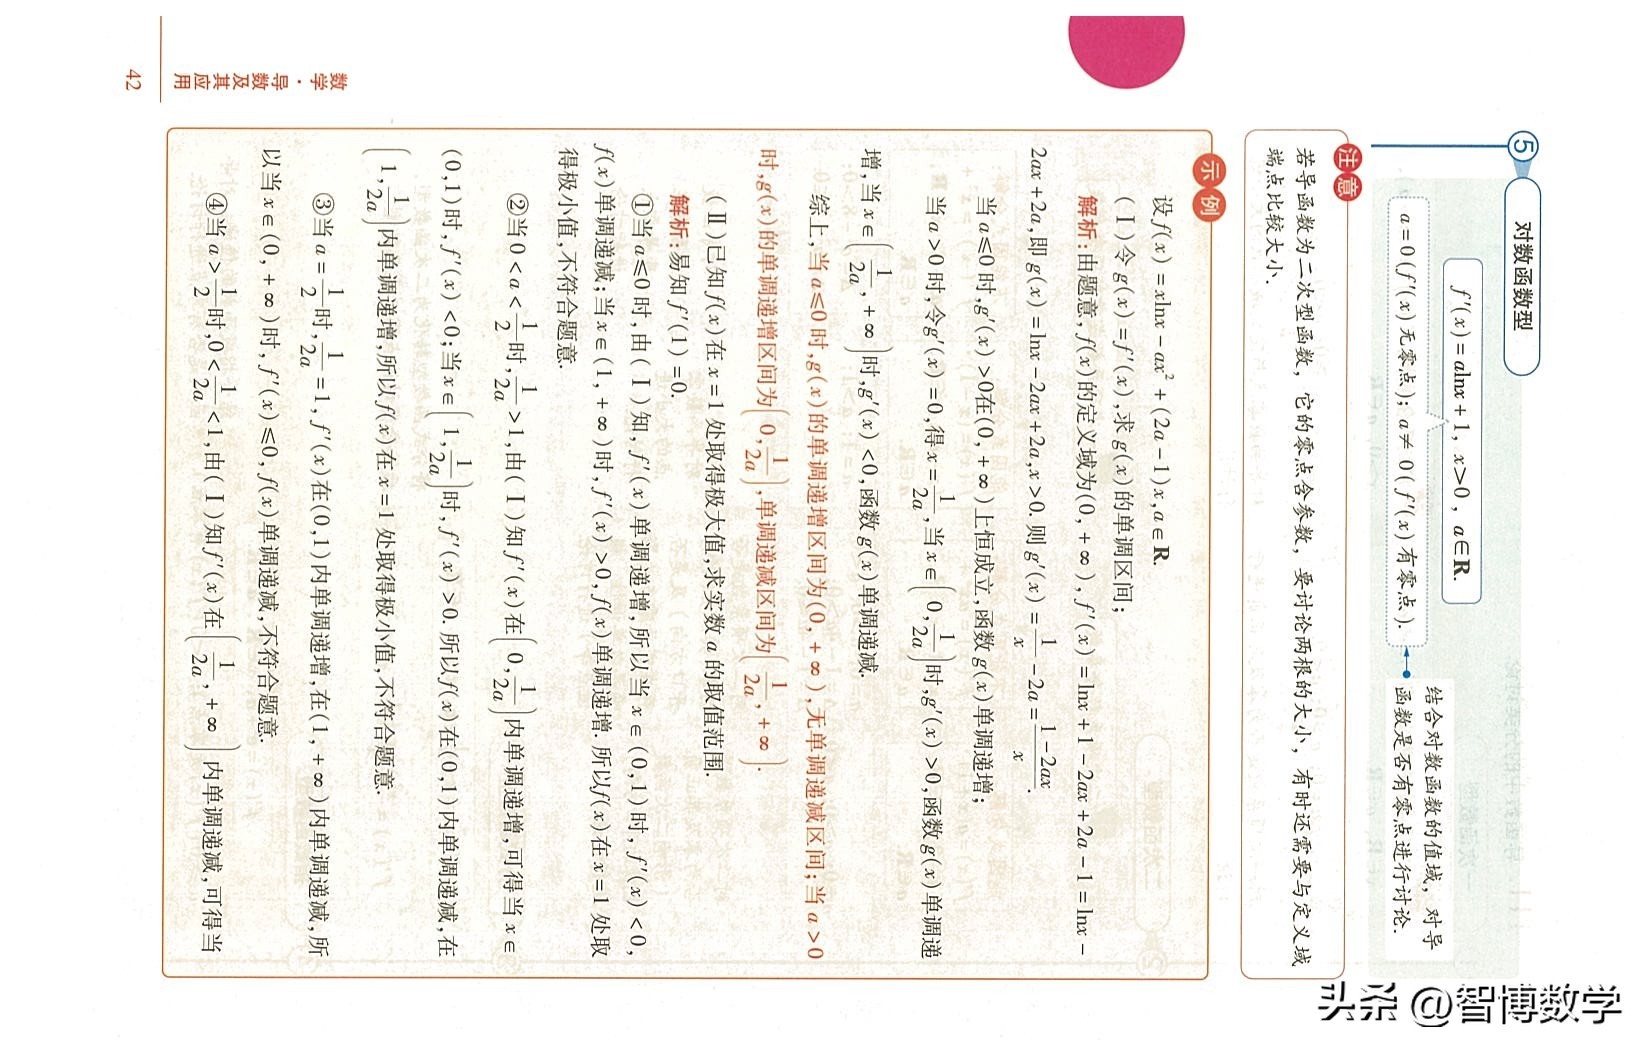 ⑤ 对数函数型
f′(x)=alnx+1, x>0, a∈R.
a=0(f′(x)无零点); a≠0(f′(x)有零点).
结合对数函数的值域，对导
函数是否有零点进行讨论.
注意
若导函数为二次型函数，它的零点含参数，要讨论两根的大小，有时还需要与定义域
端点比较大小.
示例
设f(x)=xlnx-ax²+(2a-1)x,a∈R.
(Ⅰ)令g(x)=f′(x),求g(x)的单调区间;
解析:由题意,f(x)的定义域为(0,+∞),f′(x)=lnx+1-2ax+2a-1=lnx-
2ax+2a,即g(x)=lnx-2ax+2a,x>0.则g′(x)=1/x-2a=(1-2ax)/x.
当a≤0时,g′(x)>0在(0,+∞)上恒成立,函数g(x)单调递增;
当a>0时,令g′(x)=0,得x=1/2a,当x∈(0,1/2a)时,g′(x)>0,函数g(x)单调递
增,当x∈(1/2a,+∞)时,g′(x)<0,函数g(x)单调递减.
综上,当a≤0时,g(x)的单调递增区间为(0,+∞),无单调递减区间;当a>0
时,g(x)的单调递增区间为(0,1/2a),单调递减区间为(1/2a,+∞).
(Ⅱ)已知f(x)在x=1处取得极大值,求实数a的取值范围.
解析:易知f′(1)=0.
①当a≤0时,由(Ⅰ)知,f′(x)单调递增,所以当x∈(0,1)时,f′(x)<0,
f(x)单调递减;当x∈(1,+∞)时,f′(x)>0,f(x)单调递增.所以f(x)在x=1处取
得极小值,不符合题意.
②当0<a<1/2时,1/2a>1,由(Ⅰ)知f′(x)在(0,1/2a)内单调递增,可得当x∈
(0,1)时,f′(x)<0;当x∈(1,1/2a)时,f′(x)>0.所以f(x)在(0,1)内单调递减,在
(1,1/2a)内单调递增,所以f(x)在x=1处取得极小值,不符合题意.
③当a=1/2时,1/2a=1,f′(x)在(0,1)内单调递增,在(1,+∞)内单调递减,所
以当x∈(0,+∞)时,f′(x)≤0,f(x)单调递减,不符合题意.
④当a>1/2时,0<1/2a<1,由(Ⅰ)知f′(x)在(1/2a,+∞)内单调递减,可得当
数学·导数及其应用
42
头条 @智博数学